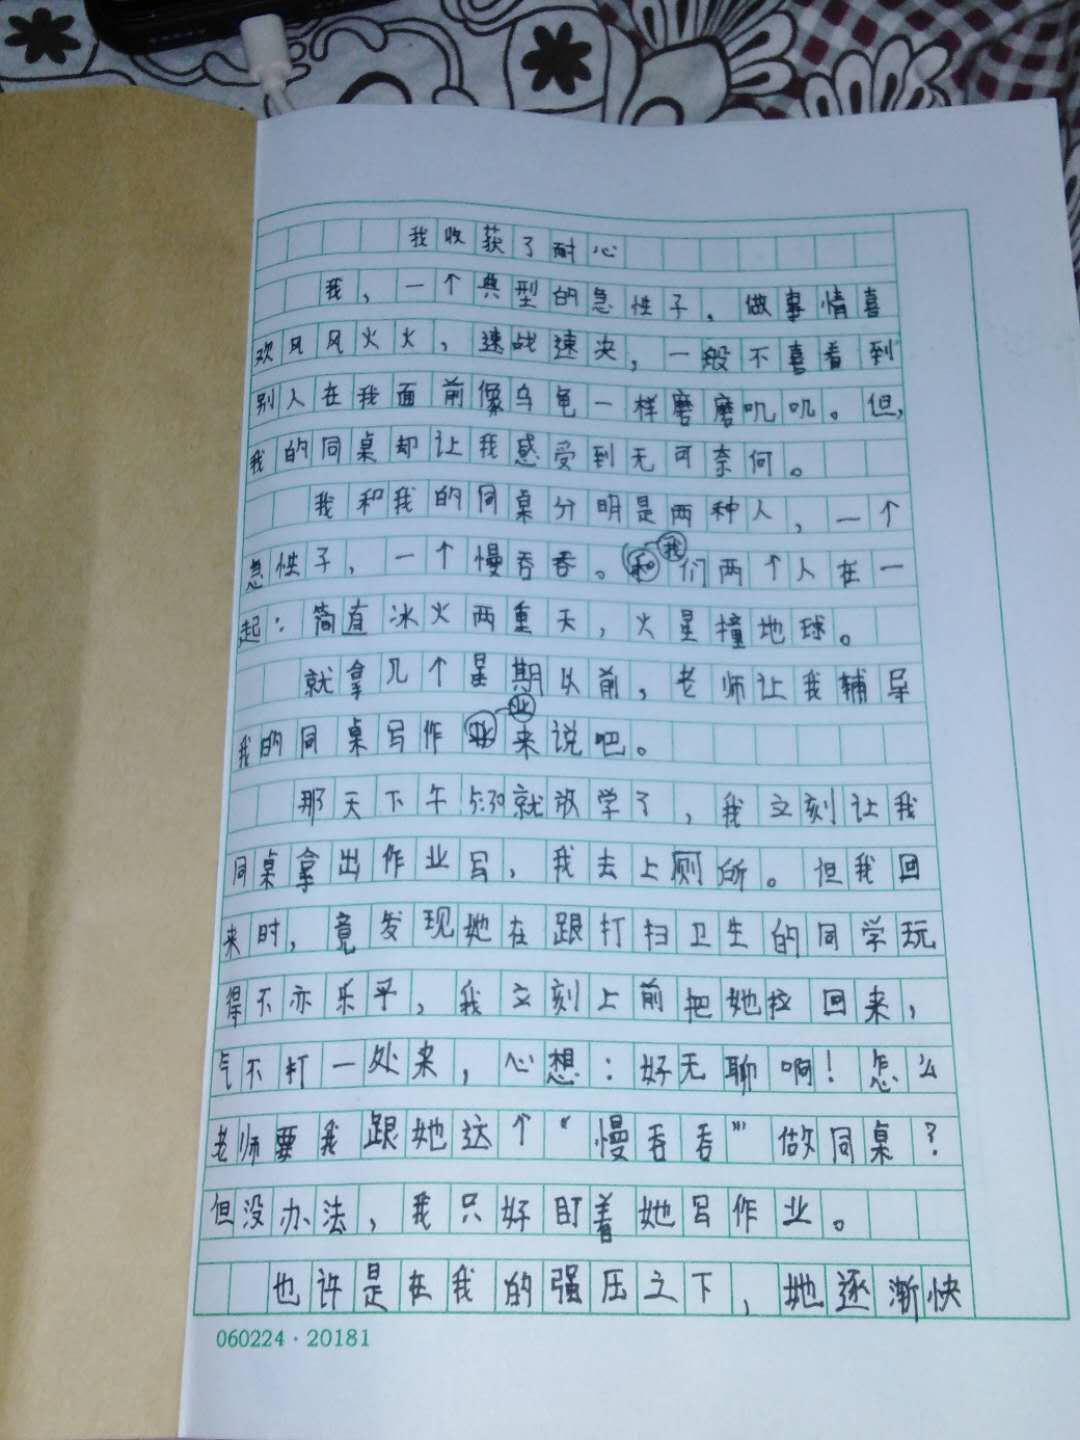 我收获了耐心
我，一个典型的急性子，做事情喜
欢风风火火，速战速决，一般不喜看到
别人在我面前像乌龟一样磨磨叽叽。但，
我的同桌却让我感受到无可奈何。
我和我的同桌分明是两种人，一个
急性子，一个慢吞吞。我们两个人在一
起：简直冰火两重天，火星撞地球。
就拿几个星期以前，老师让我辅导
我的同桌写作业来说吧。
那天下午5:30就放学了，我立刻让我
同桌拿出作业写，我去上厕所。但我回
来时，竟发现她在跟打扫卫生的同学玩
得不亦乐乎，我立刻上前把她拉回来，
气不打一处来，心想：好无聊啊！怎么
老师要我跟她这个“慢吞吞”做同桌？
但没办法，我只好盯着她写作业。
也许是在我的强压之下，她逐渐快
060224·20181